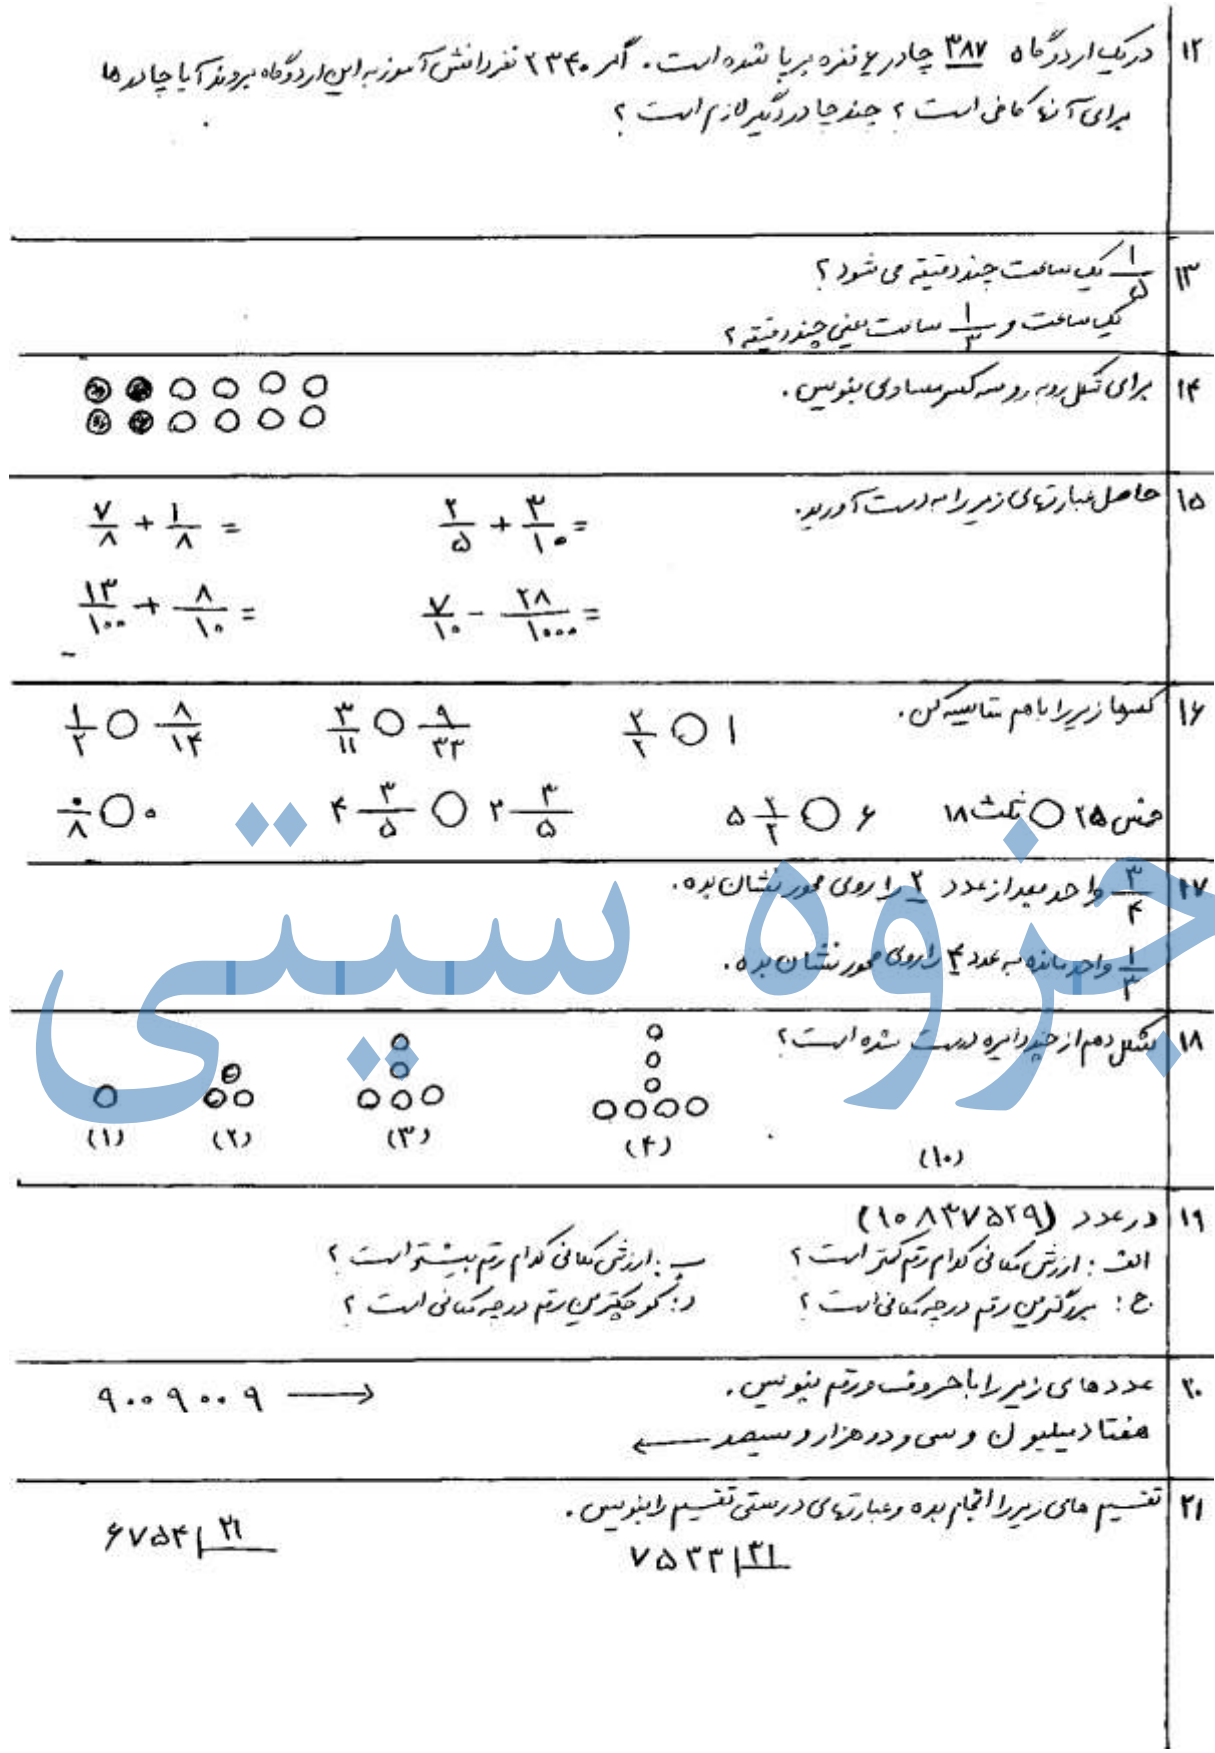 ۱۲ در یک اردوگاه ۳۸۷ چادر ۶ نفره برپا شده است. اگر ۲۳۴۰ نفر دانش آموز به این اردوگاه بروند آیا چادرها
برای آنها کافی است؟ چند چادر دیگر لازم است؟
۱۳ ۱/۵ یک ساعت چند دقیقه می شود؟
یک ساعت و ۱/۳ ساعت یعنی چند دقیقه؟
۱۴ برای شکل روبه رو سه کسر مساوی بنویس.
۱۵ حاصل عبارتهای زیر را به دست آورید.
۲/۵ + ۳/۱۰ = ۷/۸ + ۱/۸ =
۷/۱۰ - ۲۸/۱۰۰۰ = ۱۳/۱۰۰ + ۸/۱۰ =
۱۶ کسرها زیر را باهم مقایسه کن.
۲/۲ ○ ۱ ۳/۱۱ ○ ۹/۳۳ ۱/۲ ○ ۸/۱۴
خمس ۲۵ ○ ثلث ۱۸ ۵ ۲/۲ ○ ۶ ۴ ۳/۵ ○ ۲ ۳/۵ ۰/۸ ○ ۰
۱۷ ۳/۴ واحد بعد از عدد ۲ را روی محور نشان بده.
۱/۳ واحد مانده به عدد ۴ را روی محور نشان بده.
جزوه سیتی
۱۸ شکل دهم از چند دایره درست شده است؟
(۱) (۲) (۳) (۴) (۱۰)
۱۹ در عدد (۱۰۸۳۷۵۲۹)
الف: ارزش مکانی کدام رقم کمتر است؟ ب: ارزش مکانی کدام رقم بیشتر است؟
ج: بزرگترین رقم در چه مکانی است؟ د: کوچکترین رقم در چه مکانی است؟
۲۰ عددهای زیر را با حروف و رقم بنویس.
۹۰۰۹۰۰۹ →
هفتاد میلیون و سی و دو هزار و سیصد ←
۲۱ تقسیم های زیر را انجام بده و عبارتهای درستی تقسیم را بنویس.
۷۵۳۲ | ۳۱ ۶۷۵۴ | ۲۱